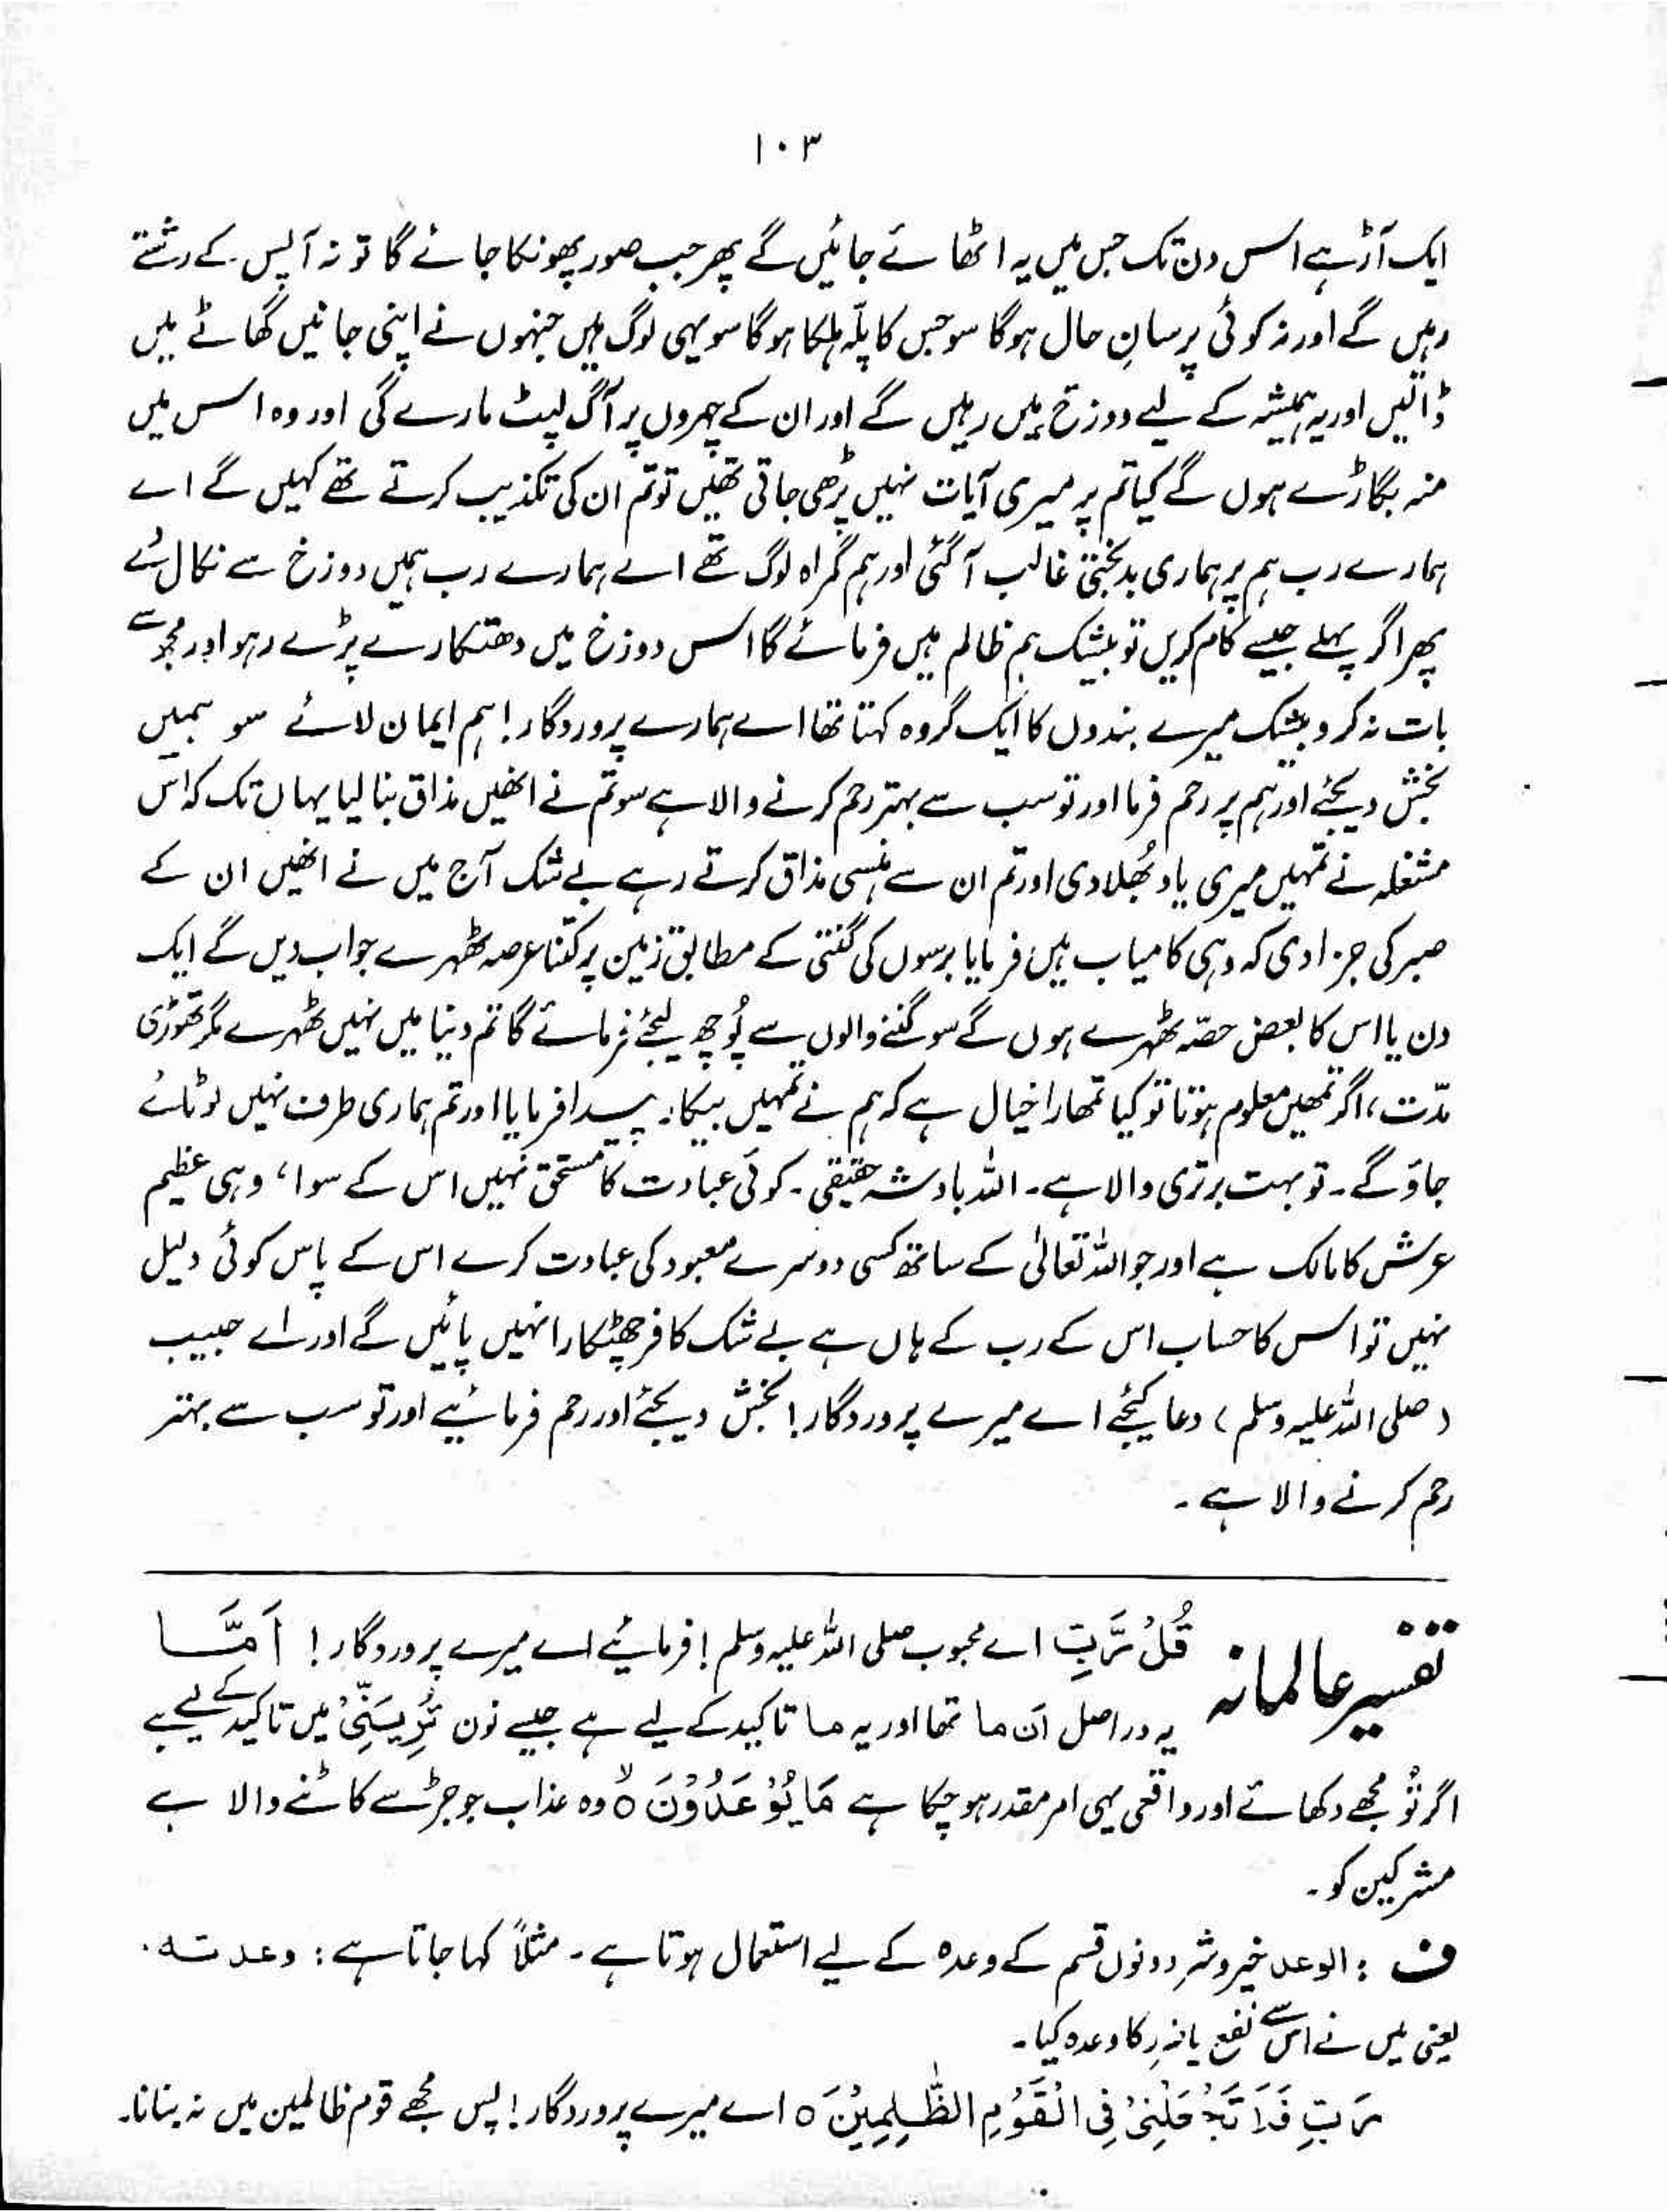 ۱۰۳
ایک آڑ ہے اس دن تک جس میں یہ اٹھائے جائیں گے پھر جب صور پھونکا جائے گا تو نہ آپس کے رشتے
رہیں گے اور نہ کوئی پرسانِ حال ہوگا سو جس کا پلّہ ہلکا ہوگا سو یہی لوگ ہیں جنہوں نے اپنی جانیں گھاٹے میں
ڈالیں اور یہ ہمیشہ کے لیے دوزخ میں رہیں گے اور ان کے چہروں پر آگ لپٹ مارے گی اور وہ اس میں
منہ بگاڑے ہوں گے کیا تم پر میری آیات نہیں پڑھی جاتی تھیں تو تم ان کی تکذیب کرتے تھے کہیں گے اے
ہمارے رب ہم پر ہماری بدبختی غالب آگئی اور ہم گمراہ لوگ تھے اے ہمارے رب ہمیں دوزخ سے نکال لے
پھر اگر پہلے جیسے کام کریں تو بیشک ہم ظالم ہیں فرمائے گا اس دوزخ میں دھتکارے پڑے رہو اور مجھ سے
بات نہ کرو بیشک میرے بندوں کا ایک گروہ کہتا تھا اے ہمارے پروردگار! ہم ایمان لائے سو ہمیں
بخش دیجئے اور ہم پر رحم فرما اور تو سب سے بہتر رحم کرنے والا ہے سو تم نے انھیں مذاق بنا لیا یہاں تک کہ اس
مشغلہ نے تمہیں میری یاد بھُلا دی اور تم ان سے ہنسی مذاق کرتے رہے بے شک آج میں نے انھیں ان کے
صبر کی جزا دی کہ وہی کامیاب ہیں فرمایا برسوں کی گنتی کے مطابق زمین پر کتنا عرصہ ٹھہرے جواب دیں گے ایک
دن یا اس کا بعض حصّہ ٹھہرے ہوں گے سو گننے والوں سے پُوچھ لیجئے فرمائے گا تم دنیا میں نہیں ٹھہرے مگر تھوڑی
مدّت، اگر تمھیں معلوم ہوتا تو کیا تمھارا خیال ہے کہ ہم نے تمہیں بیکار پیدا فرمایا اور تم ہماری طرف نہیں لوٹائے
جاؤ گے۔ تو بہت برتری والا ہے۔ اللہ بادشہ حقیقی۔ کوئی عبادت کا مستحق نہیں اس کے سوا، وہی عظیم
عرش کا مالک ہے اور جو اللہ تعالیٰ کے ساتھ کسی دوسرے معبود کی عبادت کرے اس کے پاس کوئی دلیل
نہیں تو اس کا حساب اس کے رب کے ہاں ہے بے شک کافر چھٹکارا نہیں پائیں گے اور اے حبیب
(صلی اللہ علیہ وسلم) دعا کیجئے اے میرے پروردگار! بخش دیجئے اور رحم فرمائیے اور تو سب سے بہتر
رحم کرنے والا ہے۔
تفسیر عالمانہ
قُلْ رَّبِّ اے محبوب صلی اللہ علیہ وسلم! فرمائیے اے میرے پروردگار! اَمَّا
یہ دراصل اَن ما تھا اور یہ ما تاکید کے لیے ہے جیسے نون تُرِیَنِّیْ میں تاکید کے لیے ہے
اگر تُو مجھے دکھائے اور واقعی یہی امر مقدر ہو چکا ہے مَا یُوْعَدُوْنَ ۝ وہ عذاب جو جڑ سے کاٹنے والا ہے
مشرکین کو۔
ف : الوعد خیر و شر دونوں قسم کے وعدہ کے لیے استعمال ہوتا ہے۔ مثلاً کہا جاتا ہے : وعدتہ۔
یعنی میں نے اس سے نفع یا کا وعدہ کیا۔
رَبِّ فَلَا تَجْعَلْنِیْ فِی الْقَوْمِ الظّٰلِمِیْنَ ۝ اے میرے پروردگار! پس مجھے قوم ظالمین میں نہ بنانا۔